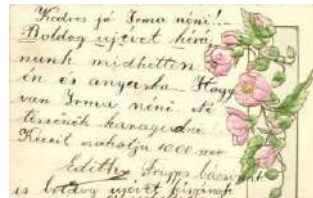 Kedves jó Irma néni!
Boldog ujévet kívá
nunk midhetten
én és anyuska. Hogy
van Irma néni. Ne
tessenek haragudni.
Kecsil csokolja 1000 szer
Edith. bácsinak
is boldog ujévet kívánok